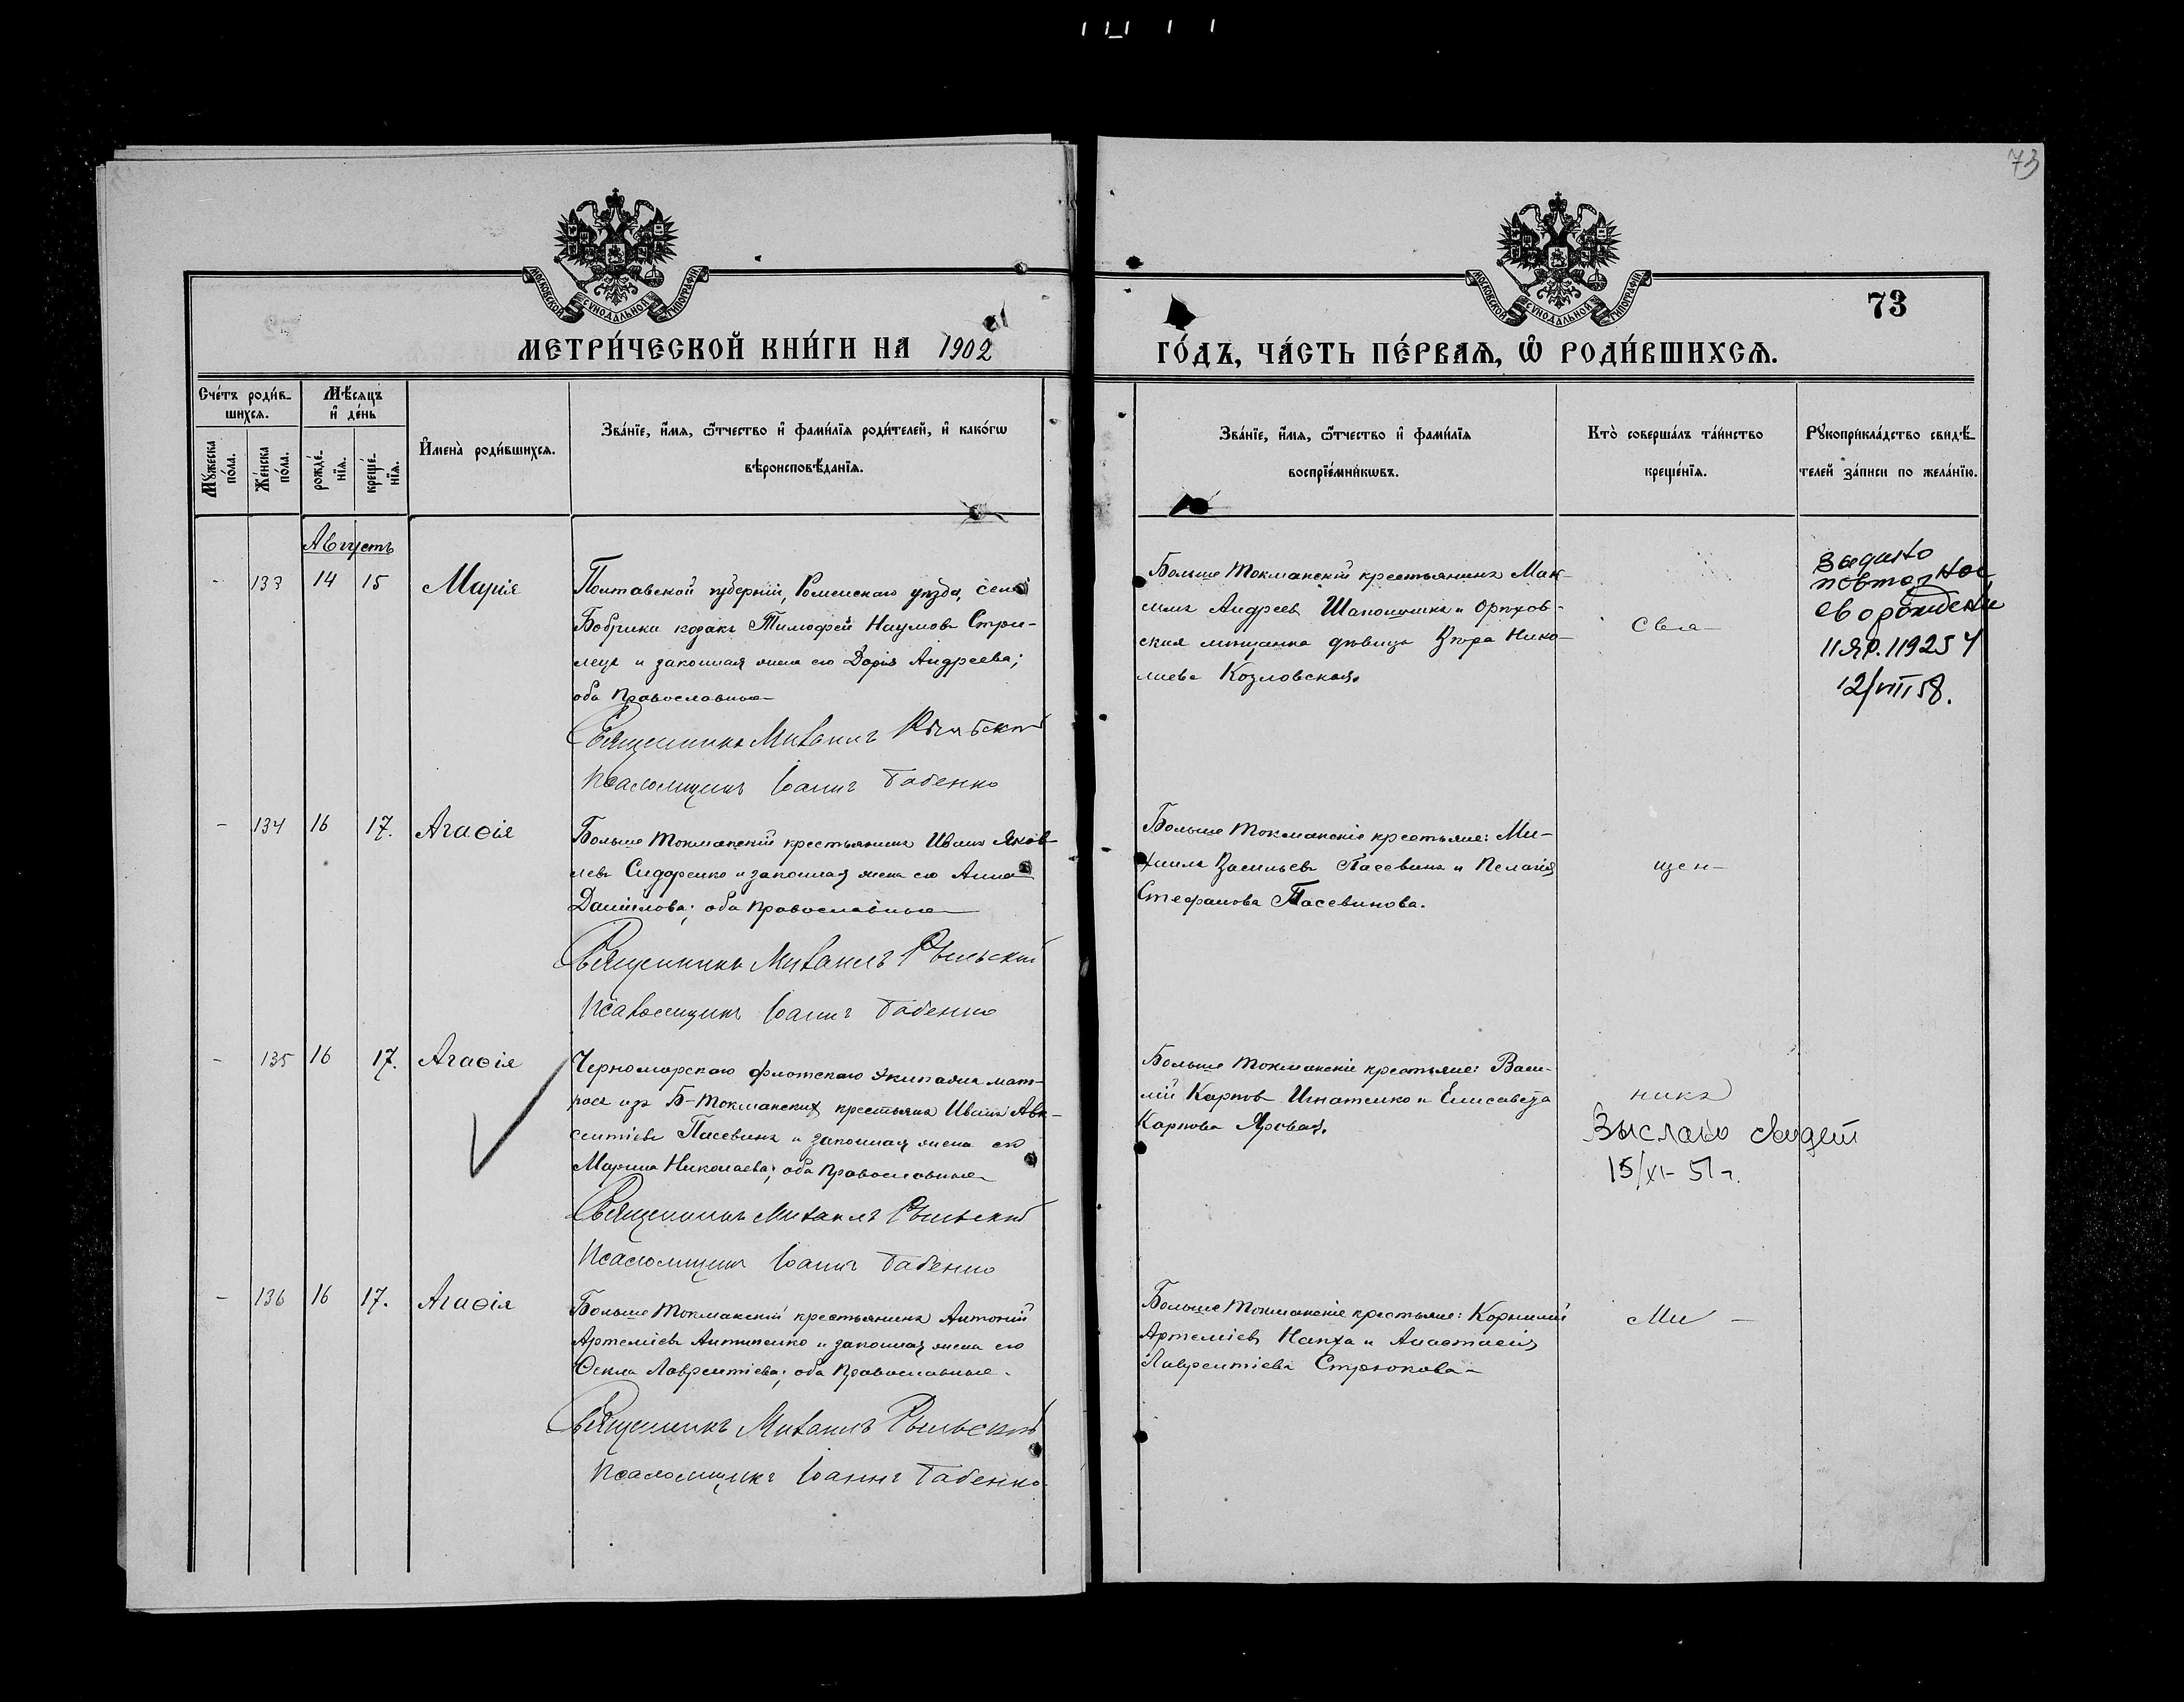 73
МОСКОВСКОЙ СѴНОДАЛЬНОЙ ТИПОГРАФІИ
МОСКОВСКОЙ СѴНОДАЛЬНОЙ ТИПОГРАФІИ
73
МЕТРИ́ЧЕСКОЙ КНИ́ГИ НА 1902
ГО́ДЪ, ЧА́СТЬ ПЕ́РВАѦ, Ѡ РОДИ́ВШИХСѦ.
Сче́тъ роди́в-
шихсѧ.
Мꙋ́жеска по́ла.
Же́нска по́ла.
Мѣ́сѧцъ
и҆ де́нь
рожде́-
нїѧ.
креще́-
нїѧ.
И҆мена̀ роди́вшихсѧ.
Зва́нїе, и҆́мѧ, ѻ҆́тчество и҆ фами́лїѧ роди́телей, и҆ како́гѡ
вѣроисповѣ́данїѧ.
Зва́нїе, и҆́мѧ, ѻ҆́тчество и҆ фами́лїѧ
воспрїе́мникѡвъ.
Кто̀ соверша́лъ та́инство
креще́нїѧ.
Рꙋкоприкла́дство свидѣ́-
телей за́писи по жела́нїю.
Августъ
- 133 14 15 Марія
Полтавской губерніи, Роменскаго уѣзда, села
Бобрики козакъ Тимофей Наумовъ Стри-
лецъ и законная жена его Дарія Андреева;
оба Православные
Священникъ Михаилъ Рыльскій
Псаломщикъ Іоаннъ Бабенко
Больше Токмакскій крестьянинъ Мак-
симъ Андреевъ Шапошникъ и Орѣхов-
ская мѣщанка дѣвица Вѣра Нико-
лаева Козловская.
Свя-
Видано
повторное
св о рождени
II ЯР. 119254
12/VIII 58.
- 134 16 17. Агаѳія
Больше Токмакскій крестьянинъ Иванъ Яков-
левъ Сидоренко и законная жена его Анна
Даніилова; оба Православные
Священникъ Михаилъ Рыльскій
Псаломщикъ Іоаннъ Бабенко
Больше Токмакскіе крестьяне: Ми-
хаилъ Васильевъ Пасевинъ и Пелагія
Стефанова Пасевинова.
щен-
- 135 16 17. Агаѳія
Черноморскаго флотскаго Экипажа мат-
росъ изъ Б-Токмакскихъ крестьянъ Иванъ Авк-
сентіевъ Пасевинъ и законная жена его
Марина Николаева; оба Православные
Священникъ Михаилъ Рыльскій
Псаломщикъ Іоаннъ Бабенко
Больше Токмакскіе крестьяне: Васи-
лій Карповъ Игнатенко и Елисавета
Карпова Яровая.
никъ
Выслано свидет
15/XI- 51 г.
- 136 16 17. Агаѳія
Больше Токмакскій крестьянинъ Антоній
Артеміевъ Антипенко и законная жена его
Ѳекла Лаврентіева; оба Православные.
Священникъ Михаилъ Рыльскій
Псаломщикъ Іоаннъ Бабенко
Больше Токмакскіе крестьяне: Корнилій
Артеміевъ Напха и Анастасія
Лаврентіева Стрюкова
Ми -